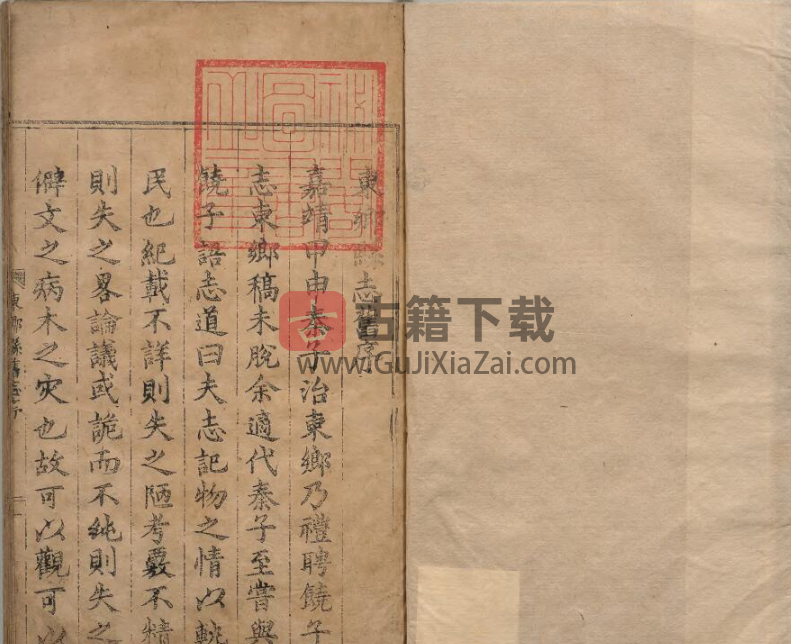 東鄉縣志舊序
嘉靖甲申秦子治東鄉乃禮聘饒子
志東鄉稿未脫余適代秦子至嘗與
饒子語志道曰夫志記物之情以軌
民也紀載不詳則失之陋考覈不精
則失之畧論議或詭而不純則失之
僻文之病木之灾也故可以觀可以
東鄉縣舊志序
古籍下载
www.GuJiXiaZai.com